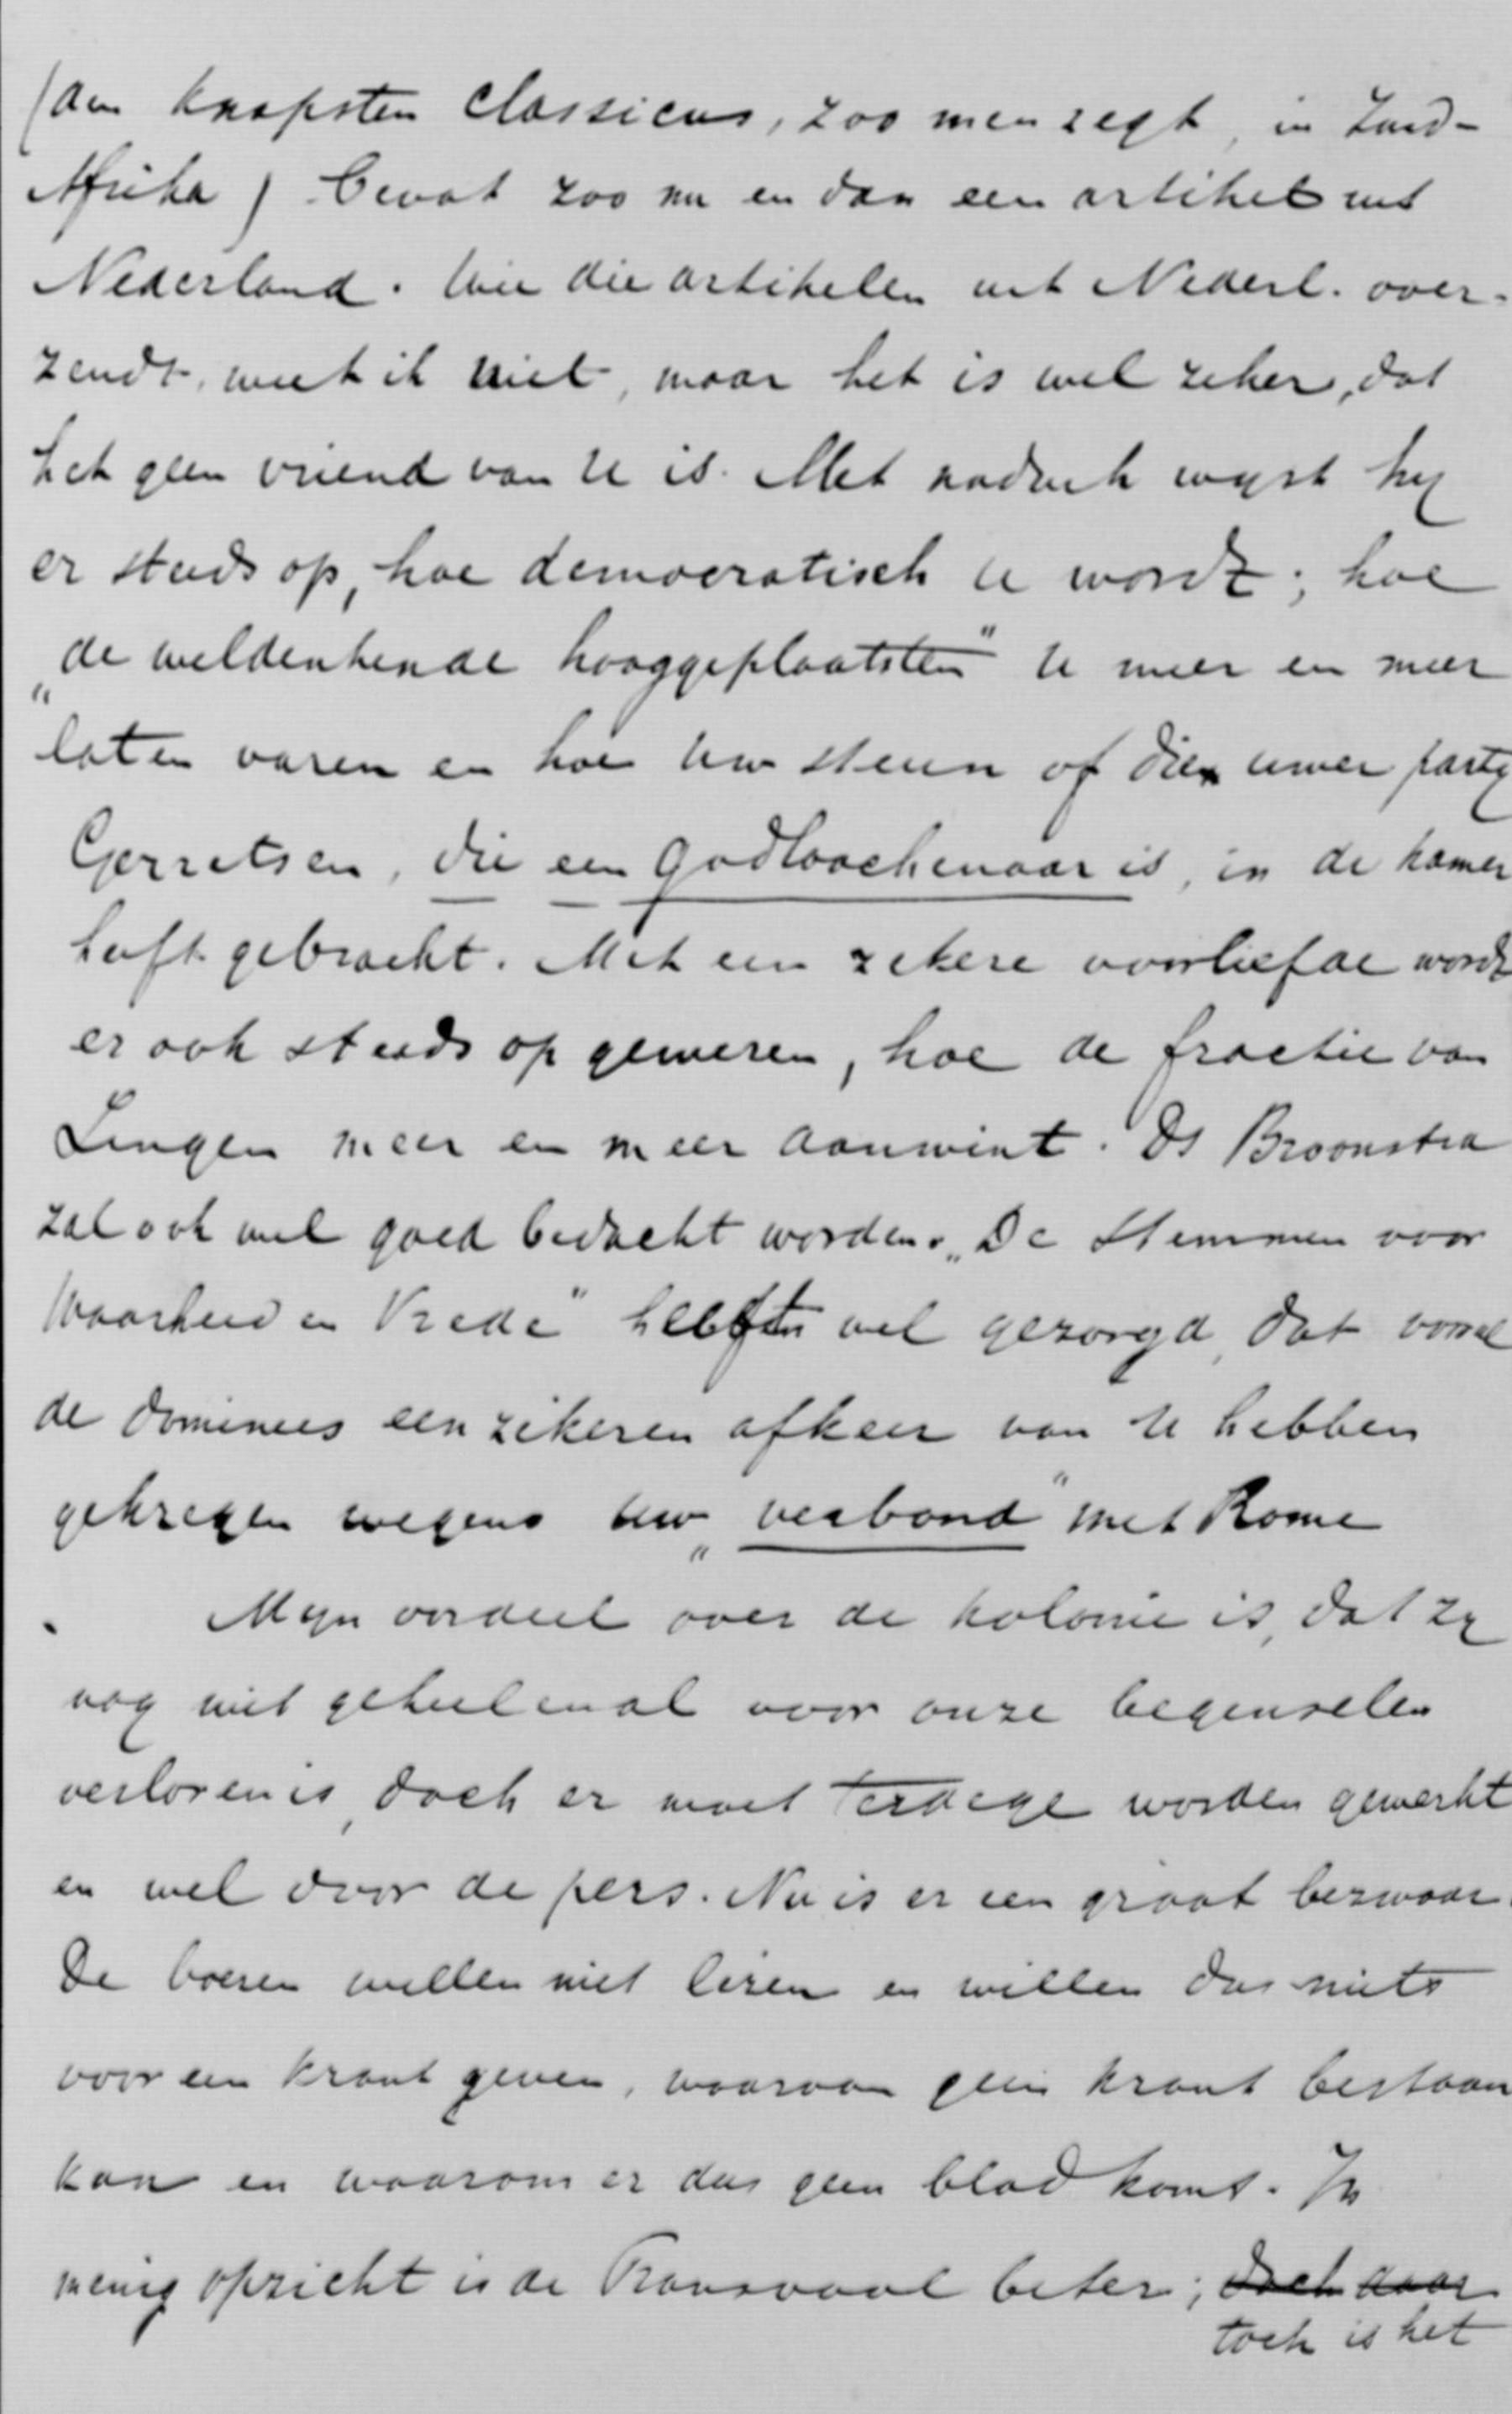 (den knapsten classicus, zoo men zegt, in Zuid-
Afrika) bevat zoo nu en dan een artikel uit
Nederland. Wie die artikelen uit Nederl. over-
zendt, weet ik niet, maar het is wel zeker, dat
het geen vriend van U is. Met nadruk wijst hij
er steeds op, hoe democratisch U wordt; hoe
„de weldenkende hooggeplaatsten" U meer en meer
laten varen en hoe Uw steun of dien uwer partij
Gerretsen, die een godloochenaar is, in de kamer
heeft gebracht. Met een zekere voorliefde wordt
er ook steeds op gewezen, hoe de fractie van
Lingen meer en meer aanwint. Ds Bronsveld
zal ook wel goed bedacht worden. „De Stemmen voor
Waarheid en Vrede" hebben wel gezorgd, dat vooral
de dominees een zekeren afkeer van U hebben
gekregen wegens uw „verbond" met Rome
Mijn oordeel over de kolonie is, dat zij
nog niet geheel en al voor onze beginselen
verloren is, doch er moet terdege worden gewerkt
en wel door de pers. Nu is er een groot bezwaar.
De boeren willen niet lezen en willen dus niets
voor een krant geven, waarvan geen krant bestaan
kan en waarom er dus geen blad komt. In
menig opzicht is de Transvaal beter; doch daar
toch is het